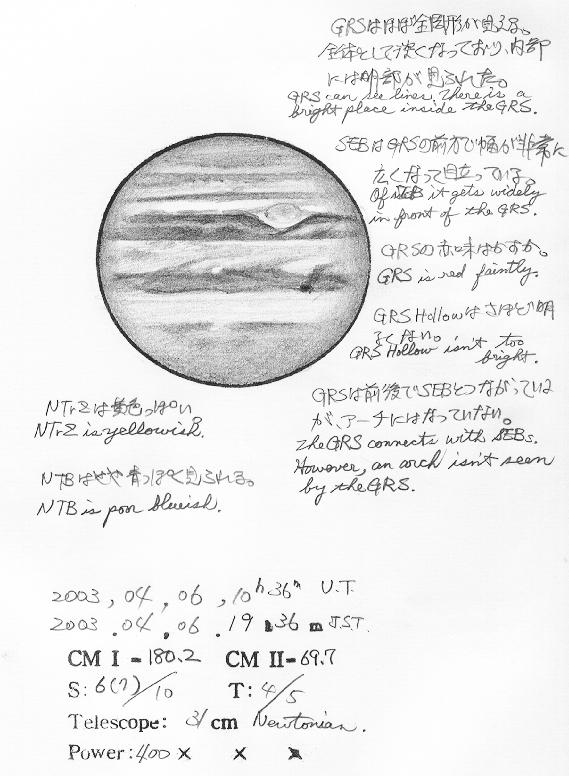 GRSはほぼ全円形が見える。
全体として淡くなっており、内部
には明部が見られた。
GRS can see lines. There is a
bright place inside the GRS.
SEBはGRSの前方で幅が非常に
広くなって目立っている。
Of SEB it gets widely
in front of the GRS.
GRSの赤味はかすか。
GRS is red faintly.
GRS Hollowはさほど明
るくない。
GRS Hollow isn't too
bright.
GRSは前後でSEBとつながっている
が、アーチにはなっていない。
The GRS connects with SEBs.
However, an arch isn't seen
by the GRS.
NTrZは黄色っぽい
NTrZ is yellowish.
NTBはやや青っぽく見られる。
NTB is poor blueish.
2003, 04, 06, 10h 36m U.T.
2003.04.06.19h36m J.S.T.
CM I = 180.2 CM II = 69.7
S: 6(7)/10 T: 4/5
Telescope: 31 cm Newtonian.
Power: 400 × × ×